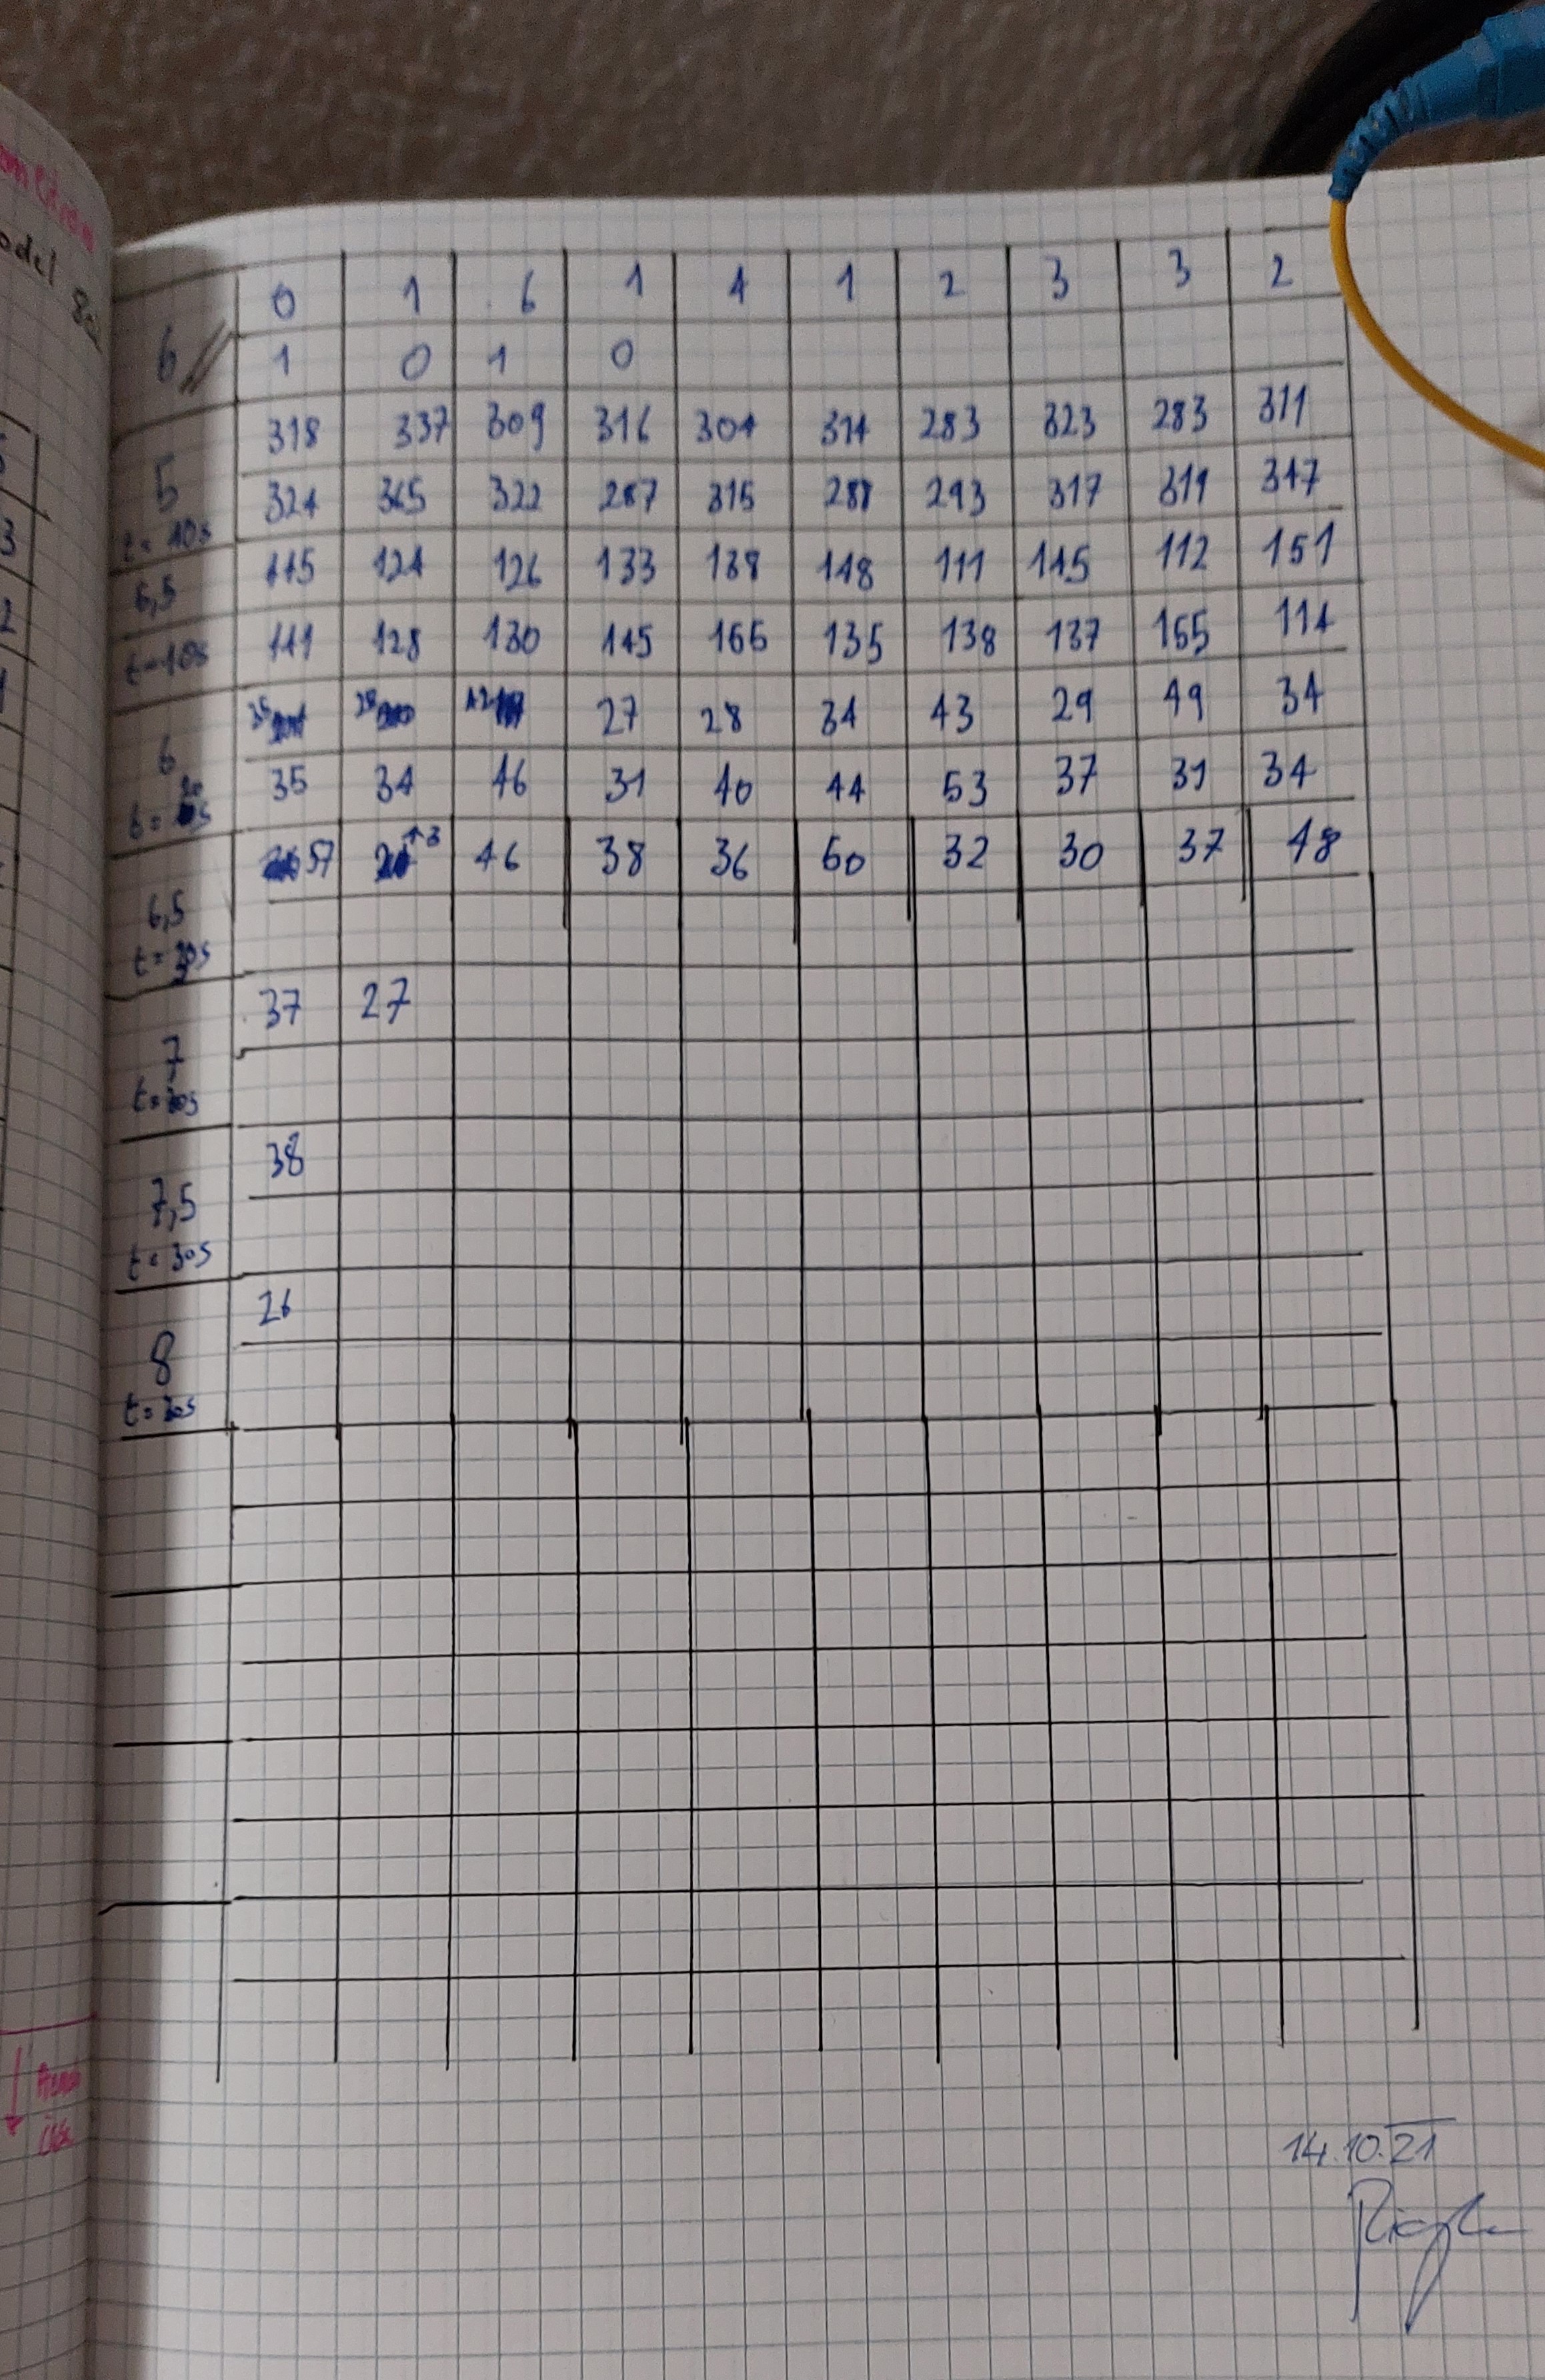 0 1 6 1 4 1 2 3 3 2
6
1 0 1 0
318 337 309 316 304 314 283 323 283 311
5
324 365 322 287 315 287 293 317 311 347
t=10s
115 124 126 133 138 148 111 145 112 151
141 128 130 145 166 135 138 137 155 114
t=10s
27 28 34 43 29 49 34
6
35 34 46 31 40 44 53 37 31 34
57 46 38 36 60 32 30 37 48
6,5
37 27
7
38
7,5
t=30s
26
8
14.10.21